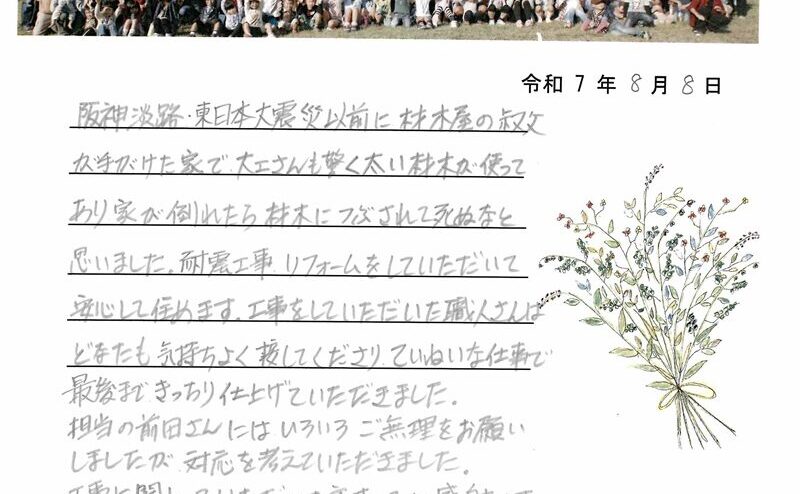 令和 7 年 8 月 8 日
阪神淡路・東日本大震災以前に 材木屋の叔父
が手がけた家で 大工さんも驚く太い材木が使って
あり家が倒れたら材木につぶされて死ぬなと
思いました。耐震工事 リフォームをしていただいて
安心して住めます。工事をしていただいた職人さんは
どなたも 気持ちよく接してくださり、ていねいな仕事で
最後まで きっちり仕上げていただきました。
担当の前田さんには いろいろ ご無理をお願い
しましたが 対応を考えていただきました。